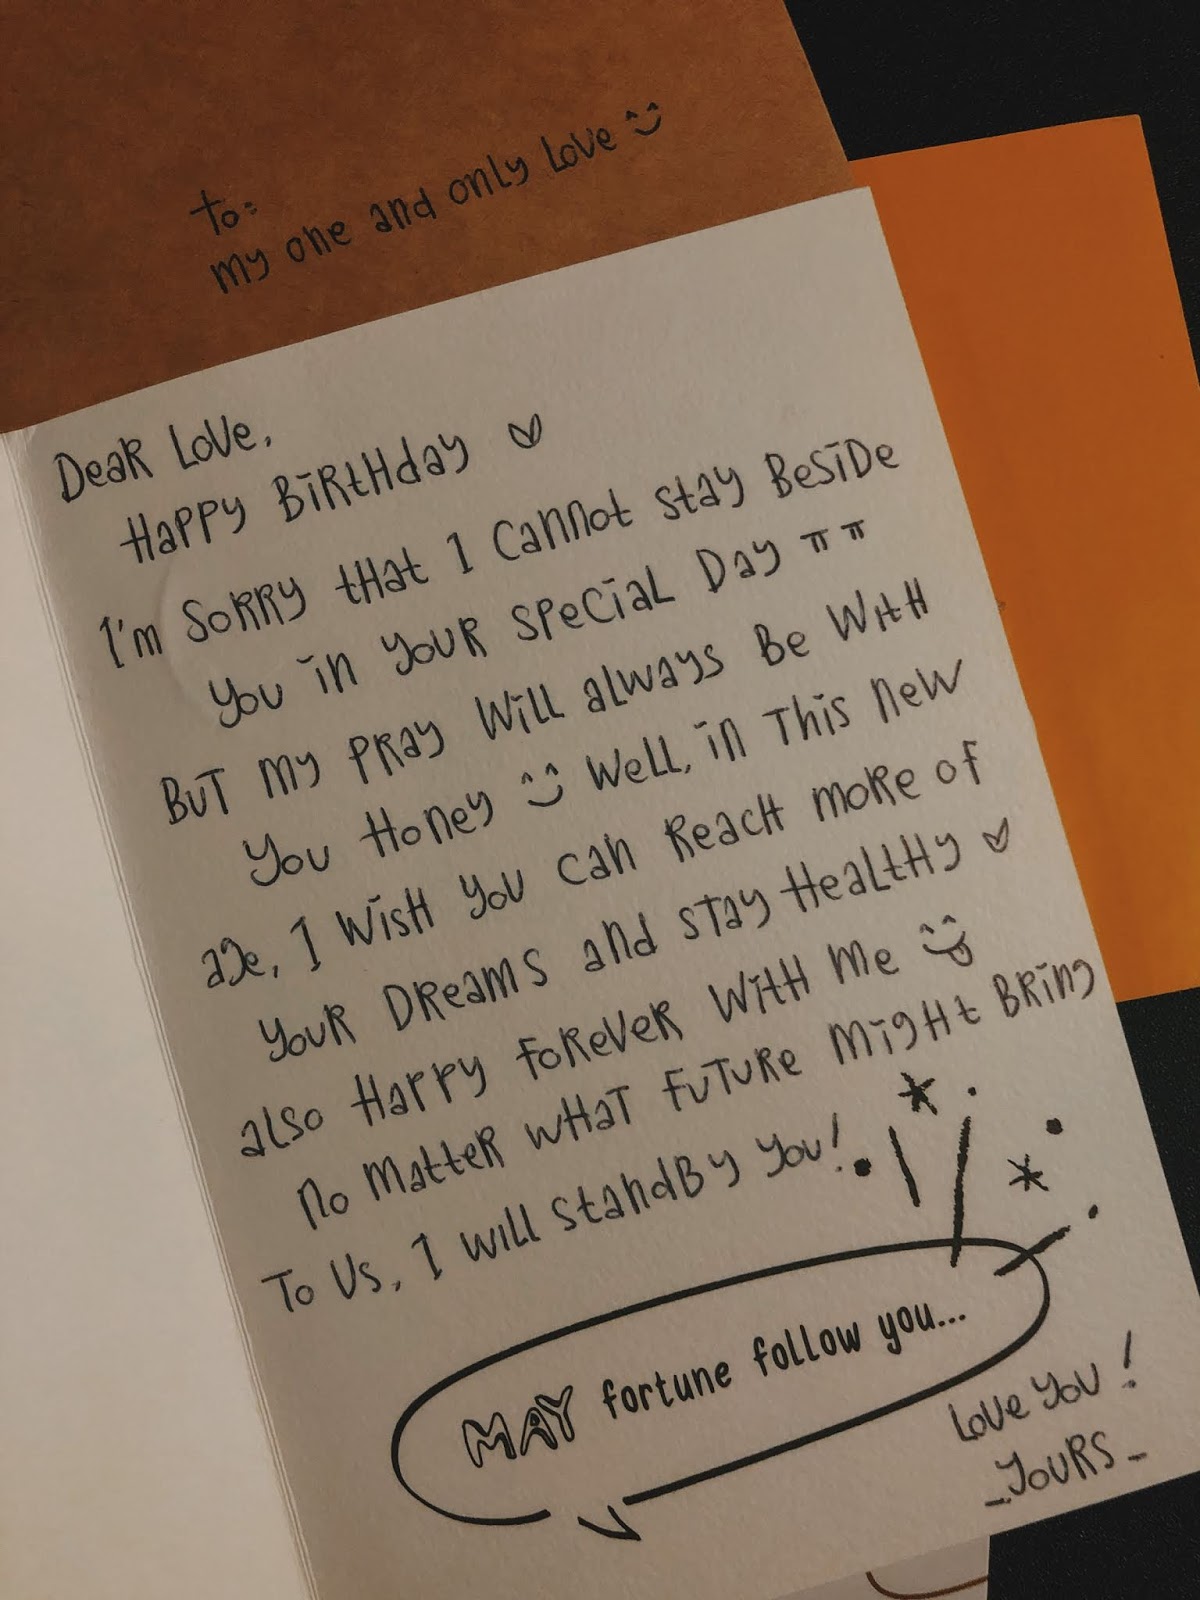 to:
my one and only Love ^‿^
Dear Love,
Happy Birthday ♡
I'm sorry that I cannot stay beside
you in your special day ㅠㅠ
But my pray will always be with
you Honey ^‿^ Well, in this new
age, I wish you can reach more of
your dreams and stay healthy ♡
also happy forever with me 😋
no matter what future might bring
To Us, I will standby you!
MAY fortune follow you...
Love you!
_Yours_